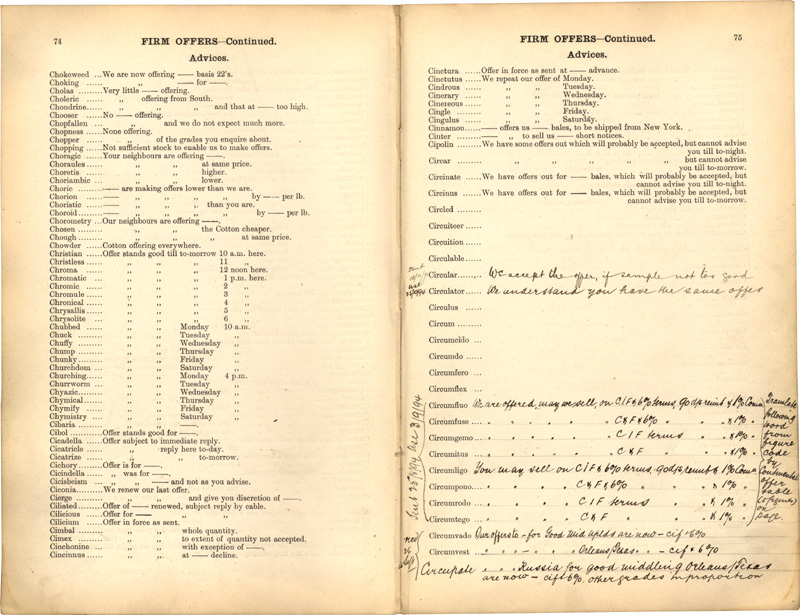 74
FIRM OFFERS—Continued.
Advices.
Chokeweed ...We are now offering —— basis 22's.
Choking ...... ,, —— for ——.
Cholas .........Very little —— offering.
Choleric ...... ,, offering from South.
Chondrine... ,, ,, ,, and that at —— too high.
Chooser ......No —— offering.
Chopfallen ... ,, and we do not expect much more.
Chopness ......None offering.
Chopper ...... ,, of the grades you enquire about.
Chopping......Not sufficient stock to enable us to make offers.
Choragie ......Your neighbours are offering ——.
Choraules...... ,, ,, at same price.
Choretis ...... ,, ,, higher.
Choriambic ... ,, ,, lower.
Choric .........—— are making offers lower than we are.
Chorion ......—— ,, ,, ,, by —— per lb.
Choristic ......—— ,, ,, ,, than you are.
Choroid.........—— ,, ,, ,, by —— per lb.
Chorometry ...Our neighbours are offering ——.
Chosen ......... ,, ,, the Cotton cheaper.
Chough ......... ,, ,, ,, at same price.
Chowder ......Cotton offering everywhere.
Christian ......Offer stands good till to-morrow 10 a.m. here.
Christless...... ,, ,, ,, 11 ,,
Chroma ...... ,, ,, ,, 12 noon here.
Chromatic ... ,, ,, ,, 1 p.m. here.
Chromic ...... ,, ,, ,, 2 ,,
Chromule...... ,, ,, ,, 3 ,,
Chronical ...... ,, ,, ,, 4 ,,
Chrysallis...... ,, ,, ,, 5 ,,
Chrysolite ... ,, ,, ,, 6 ,,
Chubbed ...... ,, ,, Monday 10 a.m.
Chuck ......... ,, ,, Tuesday ,,
Chuffy ......... ,, ,, Wednesday ,,
Chump ......... ,, ,, Thursday ,,
Chunky......... ,, ,, Friday ,,
Churchdom ... ,, ,, Saturday ,,
Churching...... ,, ,, Monday 4 p.m.
Churrworm ... ,, ,, Tuesday ,,
Chyazic......... ,, ,, Wednesday ,,
Chymical ...... ,, ,, Thursday ,,
Chymify ...... ,, ,, Friday ,,
Chymistry ... ,, ,, Saturday ,,
Cibaria ......... ,, ,, ——.
Cibol ............Offer stands good for ——.
Cicadella ......Offer subject to immediate reply.
Cicatricle ...... ,, reply here to-day.
Cicatrize ...... ,, ,, to-morrow.
Cichory .........Offer is for ——.
Cicindella ...... ,, was for ——.
Cicisbeism ... ,, ,, —— and not as you advise.
Ciconia.........We renew our last offer.
Cierge ......... ,, ,, and give you discretion of ——.
Ciliated.........Offer of —— renewed, subject reply by cable.
Cilicious ......Offer for —— ,, ,,
Cilicium ......Offer in force as sent.
Cimbal ......... ,, ,, whole quantity.
Cimex ......... ,, ,, to extent of quantity not accepted.
Cinchonine ... ,, ,, with exception of ——.
Cincinnus ... ,, ,, at —— decline.
75
FIRM OFFERS—Continued.
Advices.
Cinctura ......Offer in force as sent at —— advance.
Cinctutus ......We repeat our offer of Monday.
Cindrous ...... ,, ,, Tuesday.
Cinerary ...... ,, ,, Wednesday.
Cinereous ...... ,, ,, Thursday.
Cingle ......... ,, ,, Friday.
Cingulus ...... ,, ,, Saturday.
Cinnamon......—— offers us —— bales, to be shipped from New York.
Cinter .........—— ,, to sell us —— short notices.
Cipolin .........We have some offers out which will probably be accepted, but cannot advise
you till to-night.
Circar ......... ,, ,, ,, ,, ,, but cannot advise
you till to-morrow.
Circinate ......We have offers out for —— bales, which will probably be accepted, but
cannot advise you till to-night.
Circinus ......We have offers out for —— bales, which will probably be accepted, but
cannot advise you till to-morrow.
Circled .........
Circuiteer ......
Circuition ......
Circulable......
Circular......... We accept the offer, if sample not too good
Circulator ...... We understand you have the same offer
Circulus ......
Circum .........
Circumcido ...
Circumdo ......
Circumfero ...
Circumflex ...
Circumfluo We are offered, may we sell, on CIF & 6% terms, gds permt & 1% Comn
Circumfuse ... . . . . C&F & 6% . . & 1% .
Circumgemo ... . . . . CIF terms . . & 1% .
Circumitus ... . . . . C&F . . & 1% .
Circumligo You may sell on CIF & 6% terms, gds permt & 1% Comn
Circumpono... . . . C&F & 6% . . & 1% .
Circumrodo ... . . . CIF terms . . & 1% .
Circumtego ... . . . C&F . . & 1% .
Translate following word from figure code by Continental offer table on page
Sent 25/8/94 Use 3/9/94
Circumvado Our offer is - for Good Mid uplds are now - cif & 6%
Circumvest ... - - - Orleans/Texas - - cif & 6%
Circupate . . Russia for good middling Orleans/Texas
are now - cif & 6%. other grades in proportion